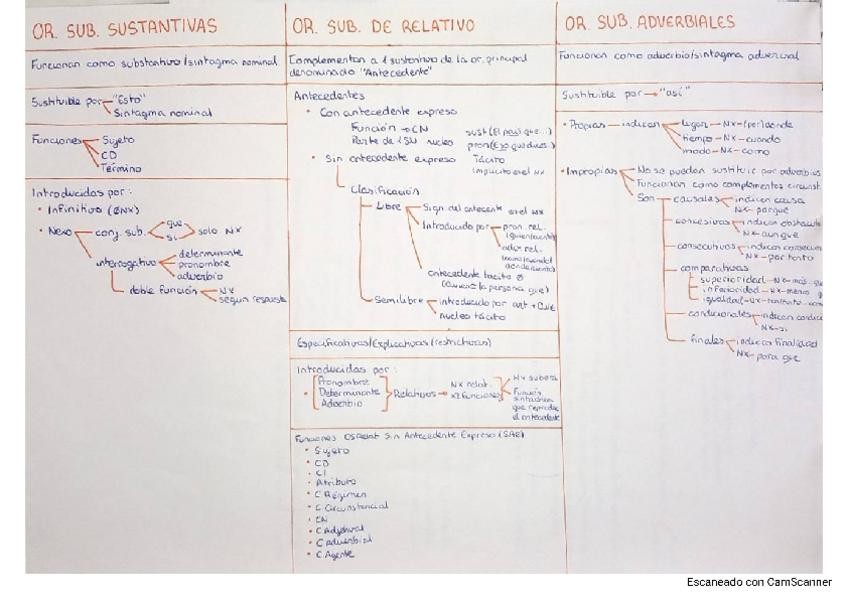 OR. SUB. SUSTANTIVAS
Funcionan como substantivo/sintagma nominal
Sustituible por "Esto"
Sintagma nominal
Funciones Sujeto
CD
Término
Introducidas por:
• Infinitivo (ØNX)
• Nexo conj. sub. que
si solo NX
interrogativo determinante
pronombre
adverbio
doble función NX
según respuesta
OR. SUB. DE RELATIVO
Complementan a 1 sustantivo de la or. principal
denominado "Antecedente"
Antecedentes
• Con antecedente expreso
Función → CN sust (El pesi que..)
Parte de 1 SN nucleo pron (Eso que dices..)
• Sin antecedente expreso Tácito
Implícito en el NX
Clasificación
Libre Sign. del antecente en el NX
Introducido por pron. rel.
adv. rel.
antecedente tacito Ø
la persona que)
Semilibre introducido por art + QUE
nucleo tácito
Especificativas/Explicativas (restrictivas)
Introducidas por:
• Pronombre
Determinante
Adverbio
Relativos → NX relat.
X2 Funciones
NX subord.
Función
sintactica
que reproduce
el antecedente
Funciones OSRelat Sin Antecedente Expreso (SAE)
• Sujeto
• CD
• CI
• Atributo
• C Régimen
• C Circunstancial
• CN
• C Adjetival
• C adverbial
• C Agente
OR. SUB. ADVERBIALES
Funcionan como adverbio/sintagma adverbial
Sustituible por → "así"
• Propias indican lugar – NX – (por) donde
tiempo – NX – cuando
modo – NX – como
• Impropias No se pueden sustituir por adverbios
Funcionan como complementos circunst
Son causales indican causa
NX porque
concesivas indican obstaculo
NX aunque
consecutivas indican consecuen
NX por tanto
comparativas
superioridad – NX – más. q
inferioridad – NX – menos q
igualdad – NX – tan/tanto.. com
condicionales indican condic
NX – si
finales indican finalidad
NX para que
Escaneado con CamScanner